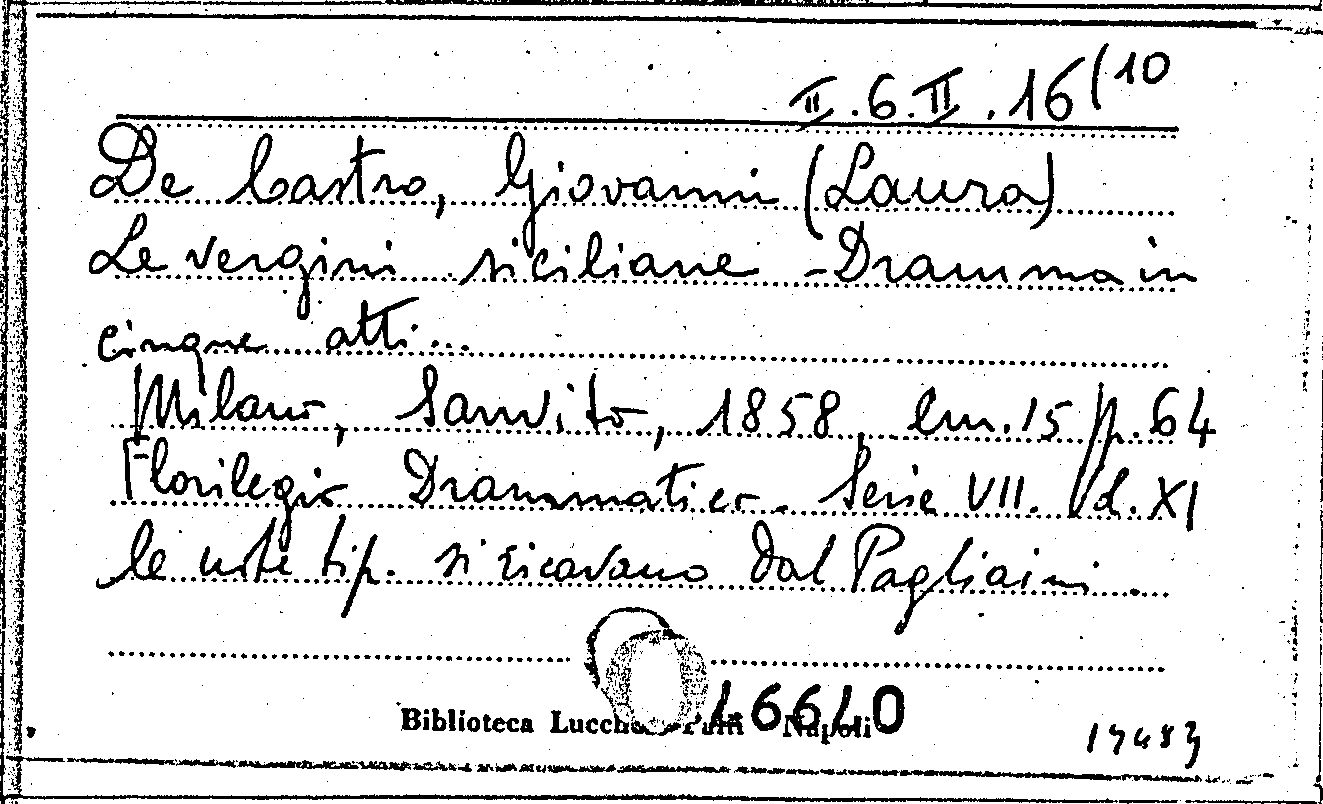 II.6.II.16(10
De Castro, Giovanni (Laura)
Le vergini siciliane - Dramma in
cinque atti...
Milano, Sanvito, 1858, cm.15 pp.64
Florilegio Drammatico. Serie VII. Vol. XI
le note tip. si ricavano dal Pagliaini.
Biblioteca Lucchesi Palli Napoli